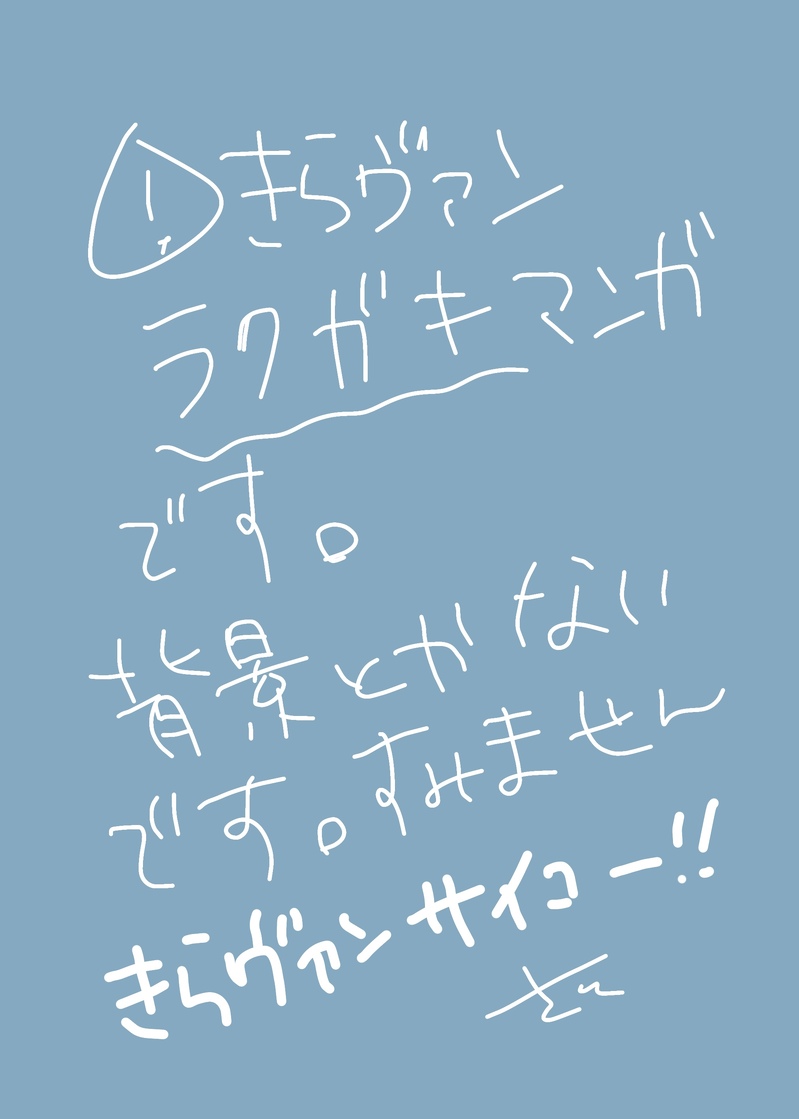 ! きらヴァン
ラクガキマンガ
です。
背景とかない
です。すみません
きらヴァンサイコー!!